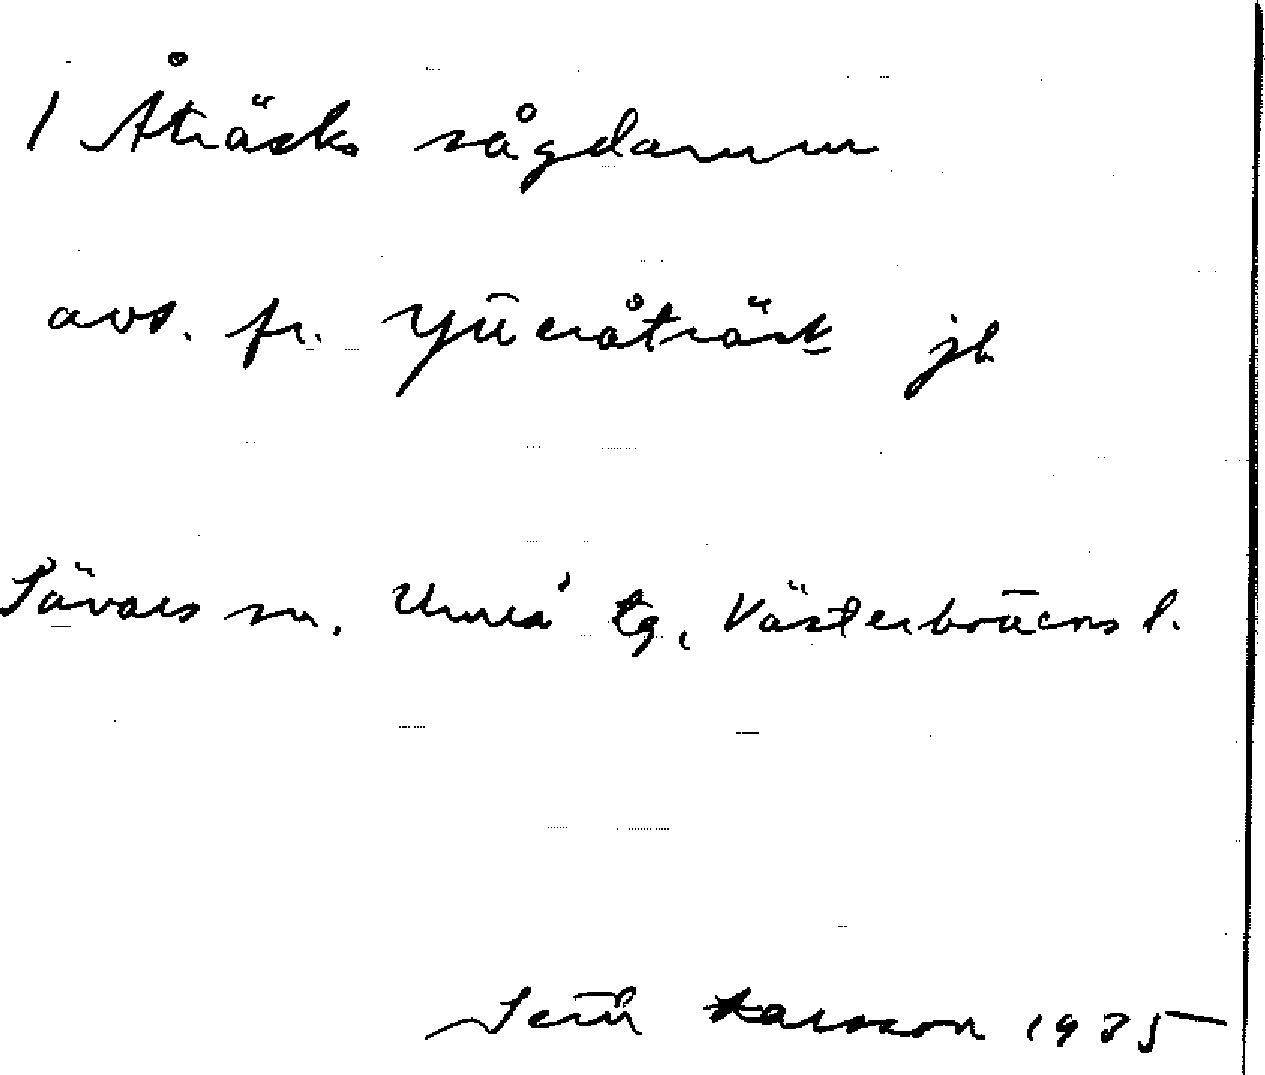 1 Åträsk sågdamm
avs. fr. Ytteråträsk jb
Sävars sn. Umeå tg, Västerbottens l.
Karsson 1935